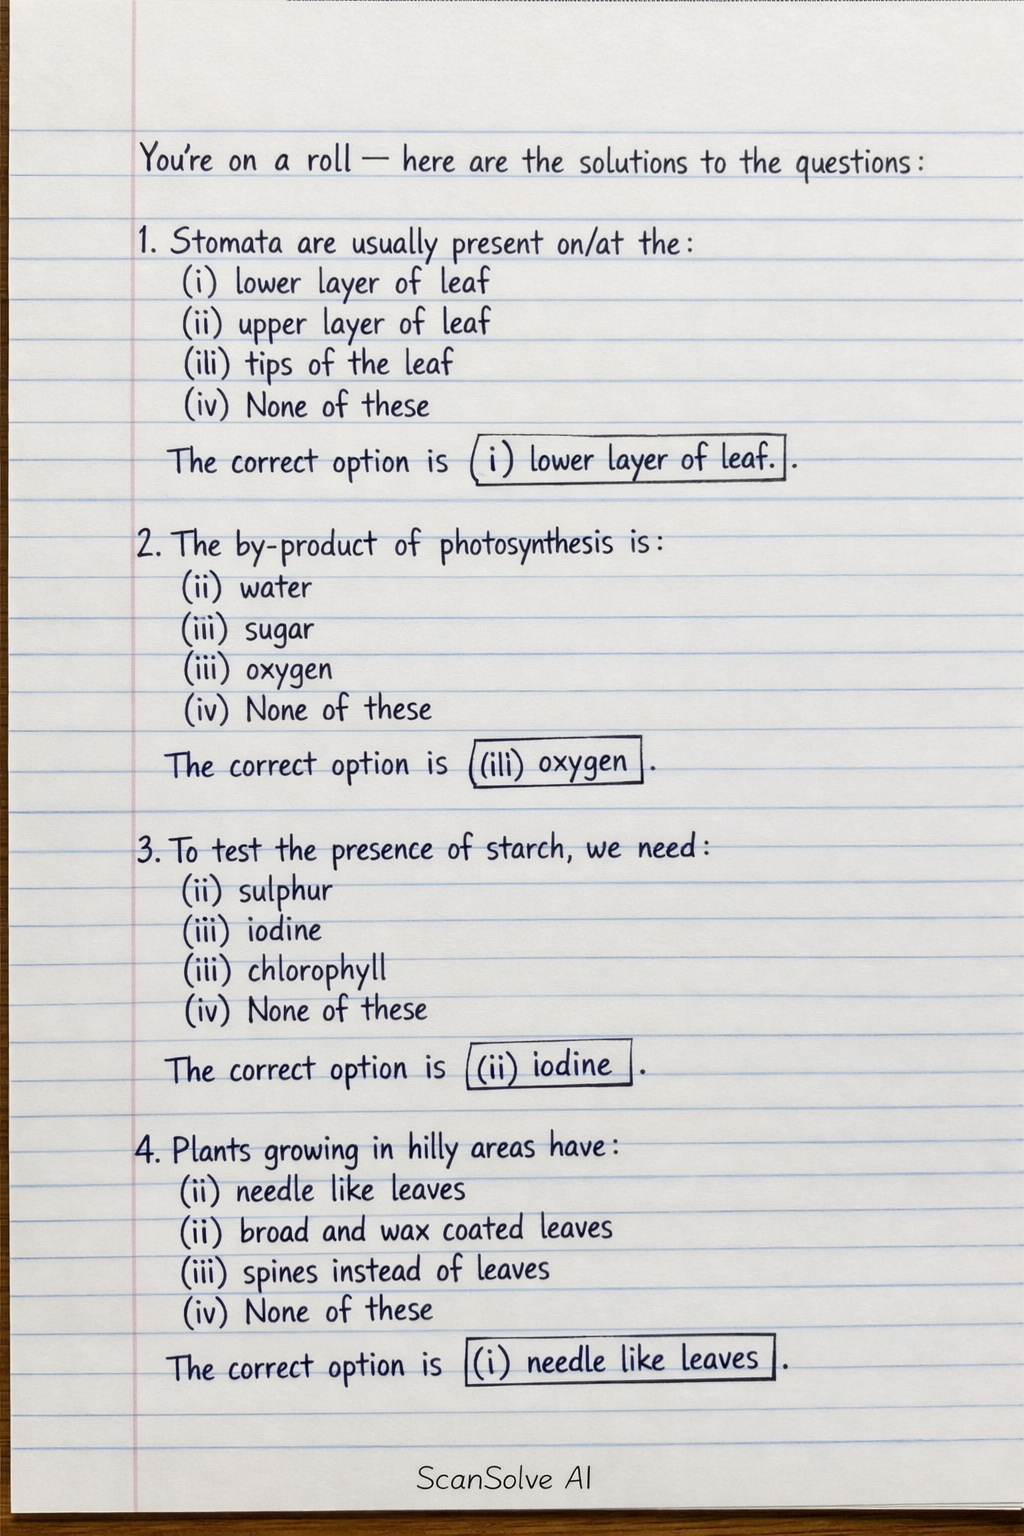 You're on a roll — here are the solutions to the questions:
1. Stomata are usually present on/at the:
(i) lower layer of leaf
(ii) upper layer of leaf
(ili) tips of the leaf
(iv) None of these
The correct option is (i) lower layer of leaf. .
2. The by-product of photosynthesis is:
(ii) water
(iii) sugar
(iii) oxygen
(iv) None of these
The correct option is (ili) oxygen .
3. To test the presence of starch, we need:
(ii) sulphur
(iii) iodine
(iii) chlorophyll
(iv) None of these
The correct option is (ii) iodine .
4. Plants growing in hilly areas have:
(ii) needle like leaves
(ii) broad and wax coated leaves
(iii) spines instead of leaves
(iv) None of these
The correct option is (i) needle like leaves .
ScanSolve AI